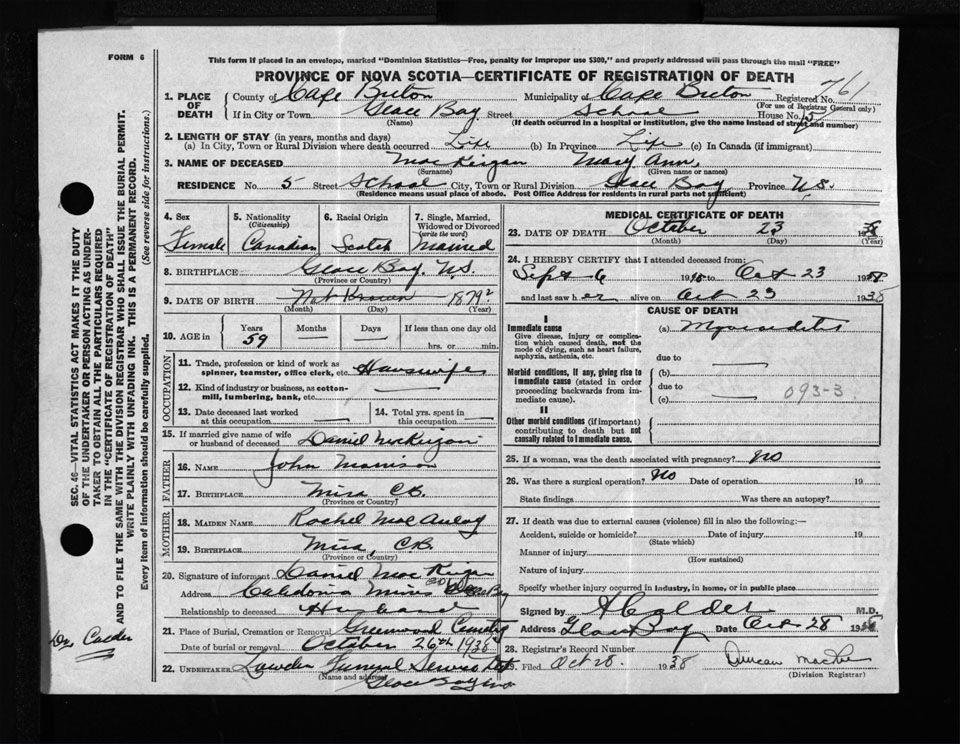 FORM 6
This form if placed in an envelope, marked "Dominion Statistics—Free, penalty for improper use $300," and properly addressed will pass through the mail "FREE"
PROVINCE OF NOVA SCOTIA—CERTIFICATE OF REGISTRATION OF DEATH
761
1. PLACE OF DEATH County of Cape Breton Municipality of Cape Breton Registered No.
(For use of Registrar General only)
If in City or Town Glace Bay Street School House No. 5
(Name) (If death occurred in a hospital or institution, give the name instead of street and number)
2. LENGTH OF STAY (in years, months and days)
(a) In City, Town or Rural Division where death occurred Life (b) In Province Life (c) In Canada (if immigrant)
3. NAME OF DECEASED MacKeigan Mary Ann,
(Surname) (Given name or names)
RESIDENCE No. 5 Street School City, Town or Rural Division Glace Bay Province N.S.
(Residence means usual place of abode. Post Office Address for residents in rural parts not sufficient)
4. Sex Female
5. Nationality (Citizenship) Canadian
6. Racial Origin Scotch
7. Single, Married, Widowed or Divorced (write the word) Married
8. BIRTHPLACE Glace Bay, N.S.
(Province or Country)
9. DATE OF BIRTH Not Known — 1879?
(Month) (Day) (Year)
10. AGE in Years 59 Months — Days — If less than one day old
hrs. or min.
OCCUPATION
11. Trade, profession or kind of work as spinner, teamster, office clerk, etc. Housewife
12. Kind of industry or business, as cotton-mill, lumbering, bank, etc.
13. Date deceased last worked at this occupation
14. Total yrs. spent in this occupation
15. If married give name of wife or husband of deceased Daniel MacKeigan
FATHER
16. NAME John Morrison
17. BIRTHPLACE Mira C.B.
(Province or Country)
MOTHER
18. MAIDEN NAME Rachel MacAulay
19. BIRTHPLACE Mira, C.B.
(Province or Country)
20. Signature of informant Daniel MacKeigan
Address Caledonia Mines Glace Bay
Relationship to deceased Husband
21. Place of Burial, Cremation or Removal Greenwood Cemetery
Date of burial or removal October 26th 1938
22. UNDERTAKER Funeral Service
(Name and address) Glace Bay
MEDICAL CERTIFICATE OF DEATH
23. DATE OF DEATH October 23 1938
(Month) (Day) (Year)
24. I HEREBY CERTIFY that I attended deceased from:
Sept 6 1938 to Oct 23 1938
and last saw her alive on Oct 23 1938
CAUSE OF DEATH
I
Immediate cause (a) Myocarditis
Give disease, injury or complication which caused death, not the mode of dying, such as heart failure, asphyxia, asthenia, etc.
due to
Morbid conditions, if any, giving rise to immediate cause (stated in order proceeding backwards from immediate cause).
(b)
due to
(c) 093-3
II
Other morbid conditions (if important) contributing to death but not causally related to immediate cause.
25. If a woman, was the death associated with pregnancy? No
26. Was there a surgical operation? No Date of operation 19
State findings Was there an autopsy?
27. If death was due to external causes (violence) fill in also the following:—
Accident, suicide or homicide? Date of injury 19
(State which)
Manner of injury
(How sustained)
Nature of injury
Specify whether injury occurred in industry, in home, or in public place
Signed by A Calder M.D.
Address Glace Bay Date Oct 28 1938
28. Registrar's Record Number
Filed Oct 28 1938 Duncan
(Division Registrar)
SEC. 46—VITAL STATISTICS ACT MAKES IT THE DUTY
OF THE UNDERTAKER OR PERSON ACTING AS UNDER-
TAKER TO OBTAIN ALL THE PARTICULARS REQUIRED
IN THE "CERTIFICATE OF REGISTRATION OF DEATH"
AND TO FILE THE SAME WITH THE DIVISION REGISTRAR WHO SHALL ISSUE THE BURIAL PERMIT.
WRITE PLAINLY WITH UNFADING INK. THIS IS A PERMANENT RECORD.
Every item of information should be carefully supplied. (See reverse side for instructions.)
Calder